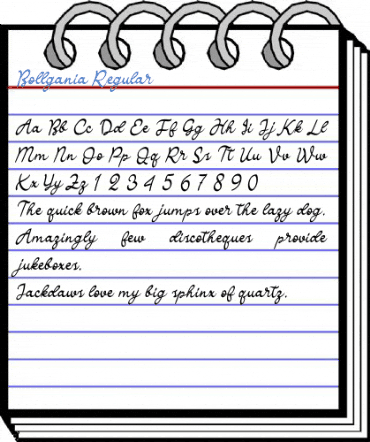 Bollgania Regular
Aa Bb Cc Dd Ee Ff Gg Hh Ii Jj Kk Ll
Mm Nn Oo Pp Qq Rr Ss Tt Uu Vv Ww
Xx Yy Zz 1 2 3 4 5 6 7 8 9 0
The quick brown fox jumps over the lazy dog.
Amazingly few discotheques provide
jukeboxes.
Jackdaws love my big sphinx of quartz.